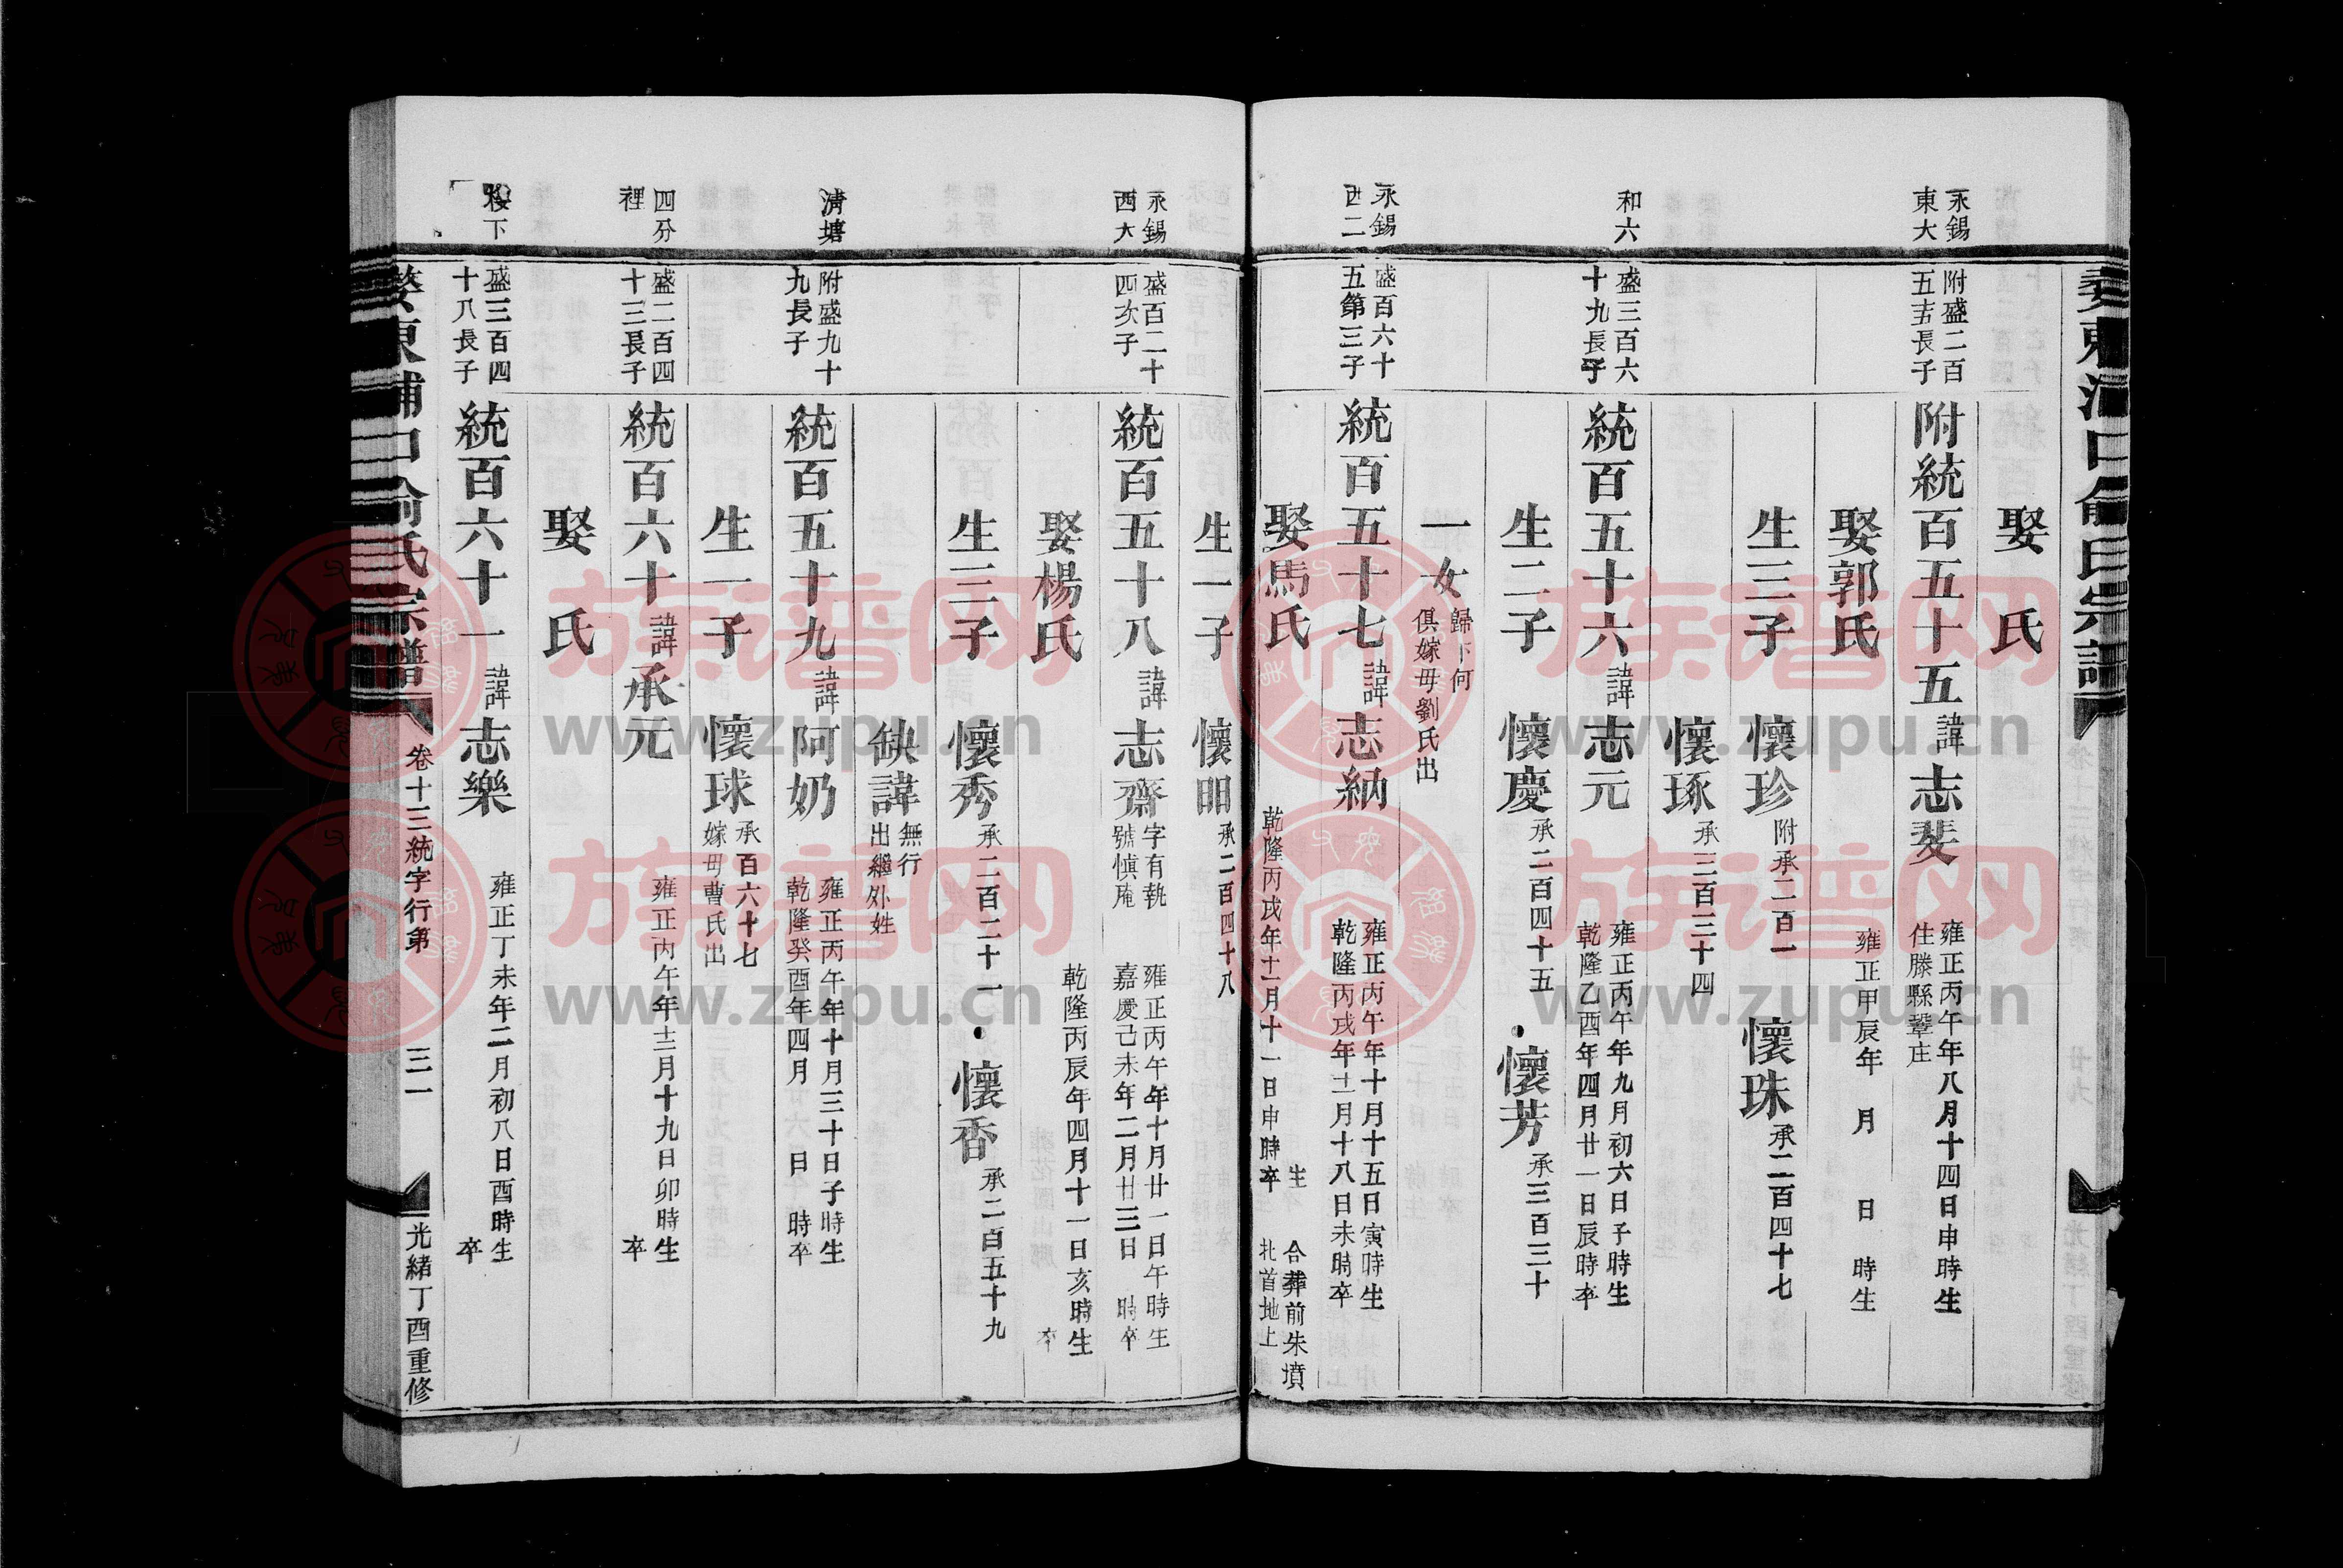 娶　氏
永錫東大
附盛二百五十五長子
附統百五十五諱志斐　雍正丙午年八月十四日申時生　住滕縣鞏庄
娶郭氏　雍正甲辰年　月　日　時生
生三子　懷珍附承二百一　懷珠承二百四十七
懷琢承三百三十四
和六
盛三百六十九長子
統百五十六諱志元　雍正丙午年九月初六日子時生　乾隆乙酉年四月廿一日辰時卒
生二子　懷慶承二百四十五　懷芳承三百三十
一女歸卞何　俱嫁母劉氏出
永錫西二
盛百六十五第三子
統百五十七諱志納　雍正丙午年十月十五日寅時生　乾隆丙戌年十二月十八日未時卒
娶馬氏　生　乾隆丙戌年十一月十一日申時卒　合葬前朱墳北首地上
生一子　懷明承二百四十八
永錫西大
盛百二十四次子
統百五十八諱志齋字有執號慎庵　雍正丙午年十月廿一日午時生　嘉慶己未年二月廿三日　時卒
娶楊氏　乾隆丙辰年四月十一日亥時生　卒
生三子　懷秀承二百二十一　懷香承二百五十九
缺諱無行出繼外姓
清塘
附盛九十九長子
統百五十九諱阿奶　雍正丙午年十月三十日子時生　乾隆癸酉年四月　日　時卒
生一子　懷球承百六十七　嫁母曹氏出
四分裡
盛二百四十三長子
統百六十諱承元　雍正丙午年十二月十九日卯時生　卒
娶　氏
樓下
盛三百四十八長子
統百六十一諱志樂　雍正丁未年二月初八日酉時生　卒
卷十三統字行第　三一　光緒丁酉重修
族谱网
www.zupu.cn
族谱网
www.zupu.cn
族谱网
www.zupu.cn
族谱网
www.zupu.cn